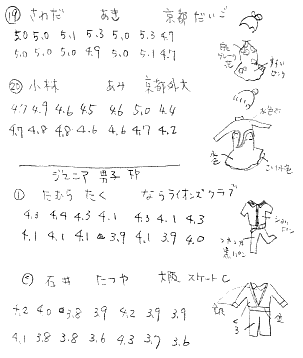 ⑲ さわだ あき 京都だいご
5.0 5.0 5.1 5.3 5.0 5.3 4.7
5.0 5.0 5.0 4.9 5.0 5.1 4.7
⑳ 小林 あみ 京都外大
4.7 4.9 4.6 4.5 4.6 5.0 4.4
4.7 4.8 4.8 4.6 4.6 4.7 4.2
水色
ジュニア 男子 SP
① たむら たく ならライオンズクラブ
4.3 4.4 4.3 4.1 4.3 4.1 4.3
4.1 4.1 4.1 3.9 4.1 3.9 4.0
石井 たつや 大阪スケートC
4.2 4.0 3.8 3.9 4.2 3.9 3.9
4.1 3.8 3.8 3.6 4.3 3.7 3.6